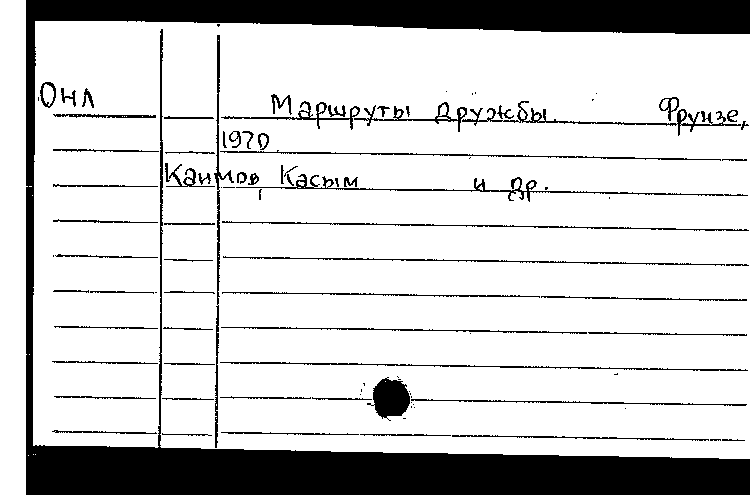 Онл Маршруты дружбы. Фрунзе,
1970
Каимов, Касым и др.